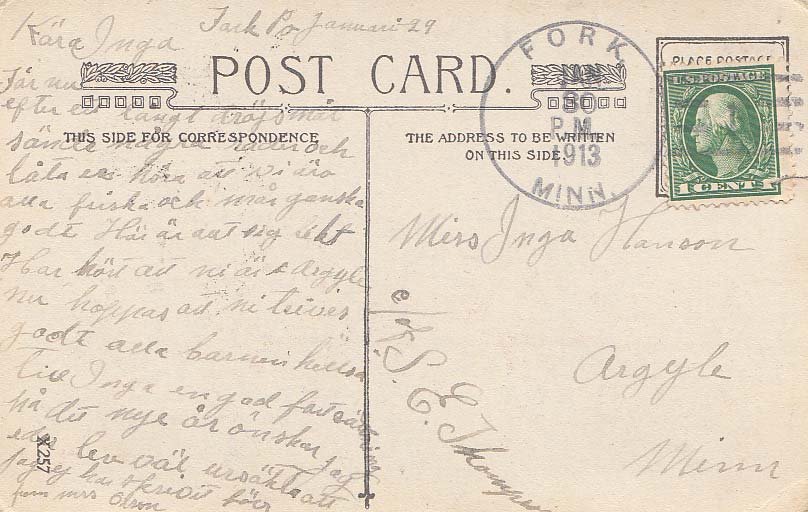 Kära Inga Fork Po Januari 29
POST CARD.
THIS SIDE FOR CORRESPONDENCE
Får nu
efter ett langt dröjsmål
sända några rader och
låta er höra att vi äro
alla friska och mår ganska
godt Här är allt sig likt
Har hört att ni är i Argyle
nu hoppas att ni trives
godt alla barnen hälsa
till Inga en god fortsättning
på det nye år önskar jag
eder lev väl ursäkta att
jag ej har skrivit förr
from mrs Olson
X257
THE ADDRESS TO BE WRITTEN
ON THIS SIDE.
FORK
JAN
30
P.M.
1913
MINN.
PLACE POSTAGE
U.S. POSTAGE
1 CENT 1
Miss Inga Hanson
c/o S. E. Thompson
Argyle
Minn